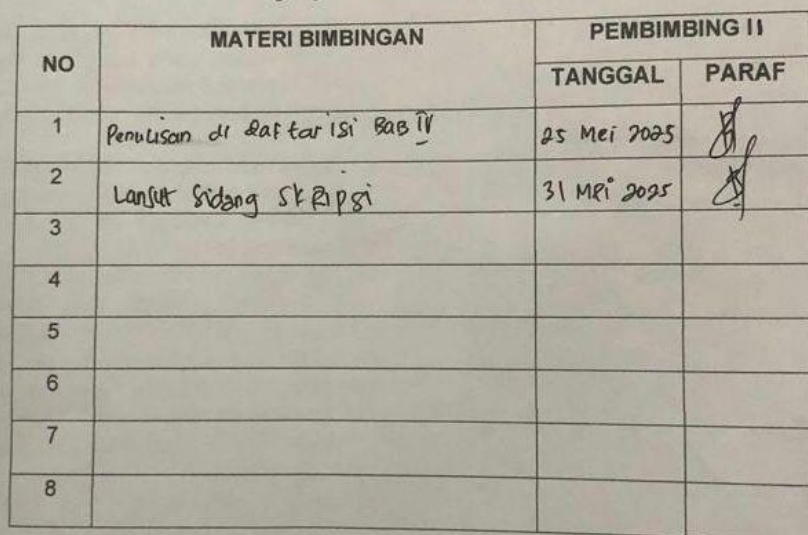 NO MATERI BIMBINGAN PEMBIMBING II
TANGGAL PARAF
1 Penulisan di daftar isi Bab IV 25 Mei 2025
2 Lanjut Sidang Skripsi 31 Mei 2025
3
4
5
6
7
8